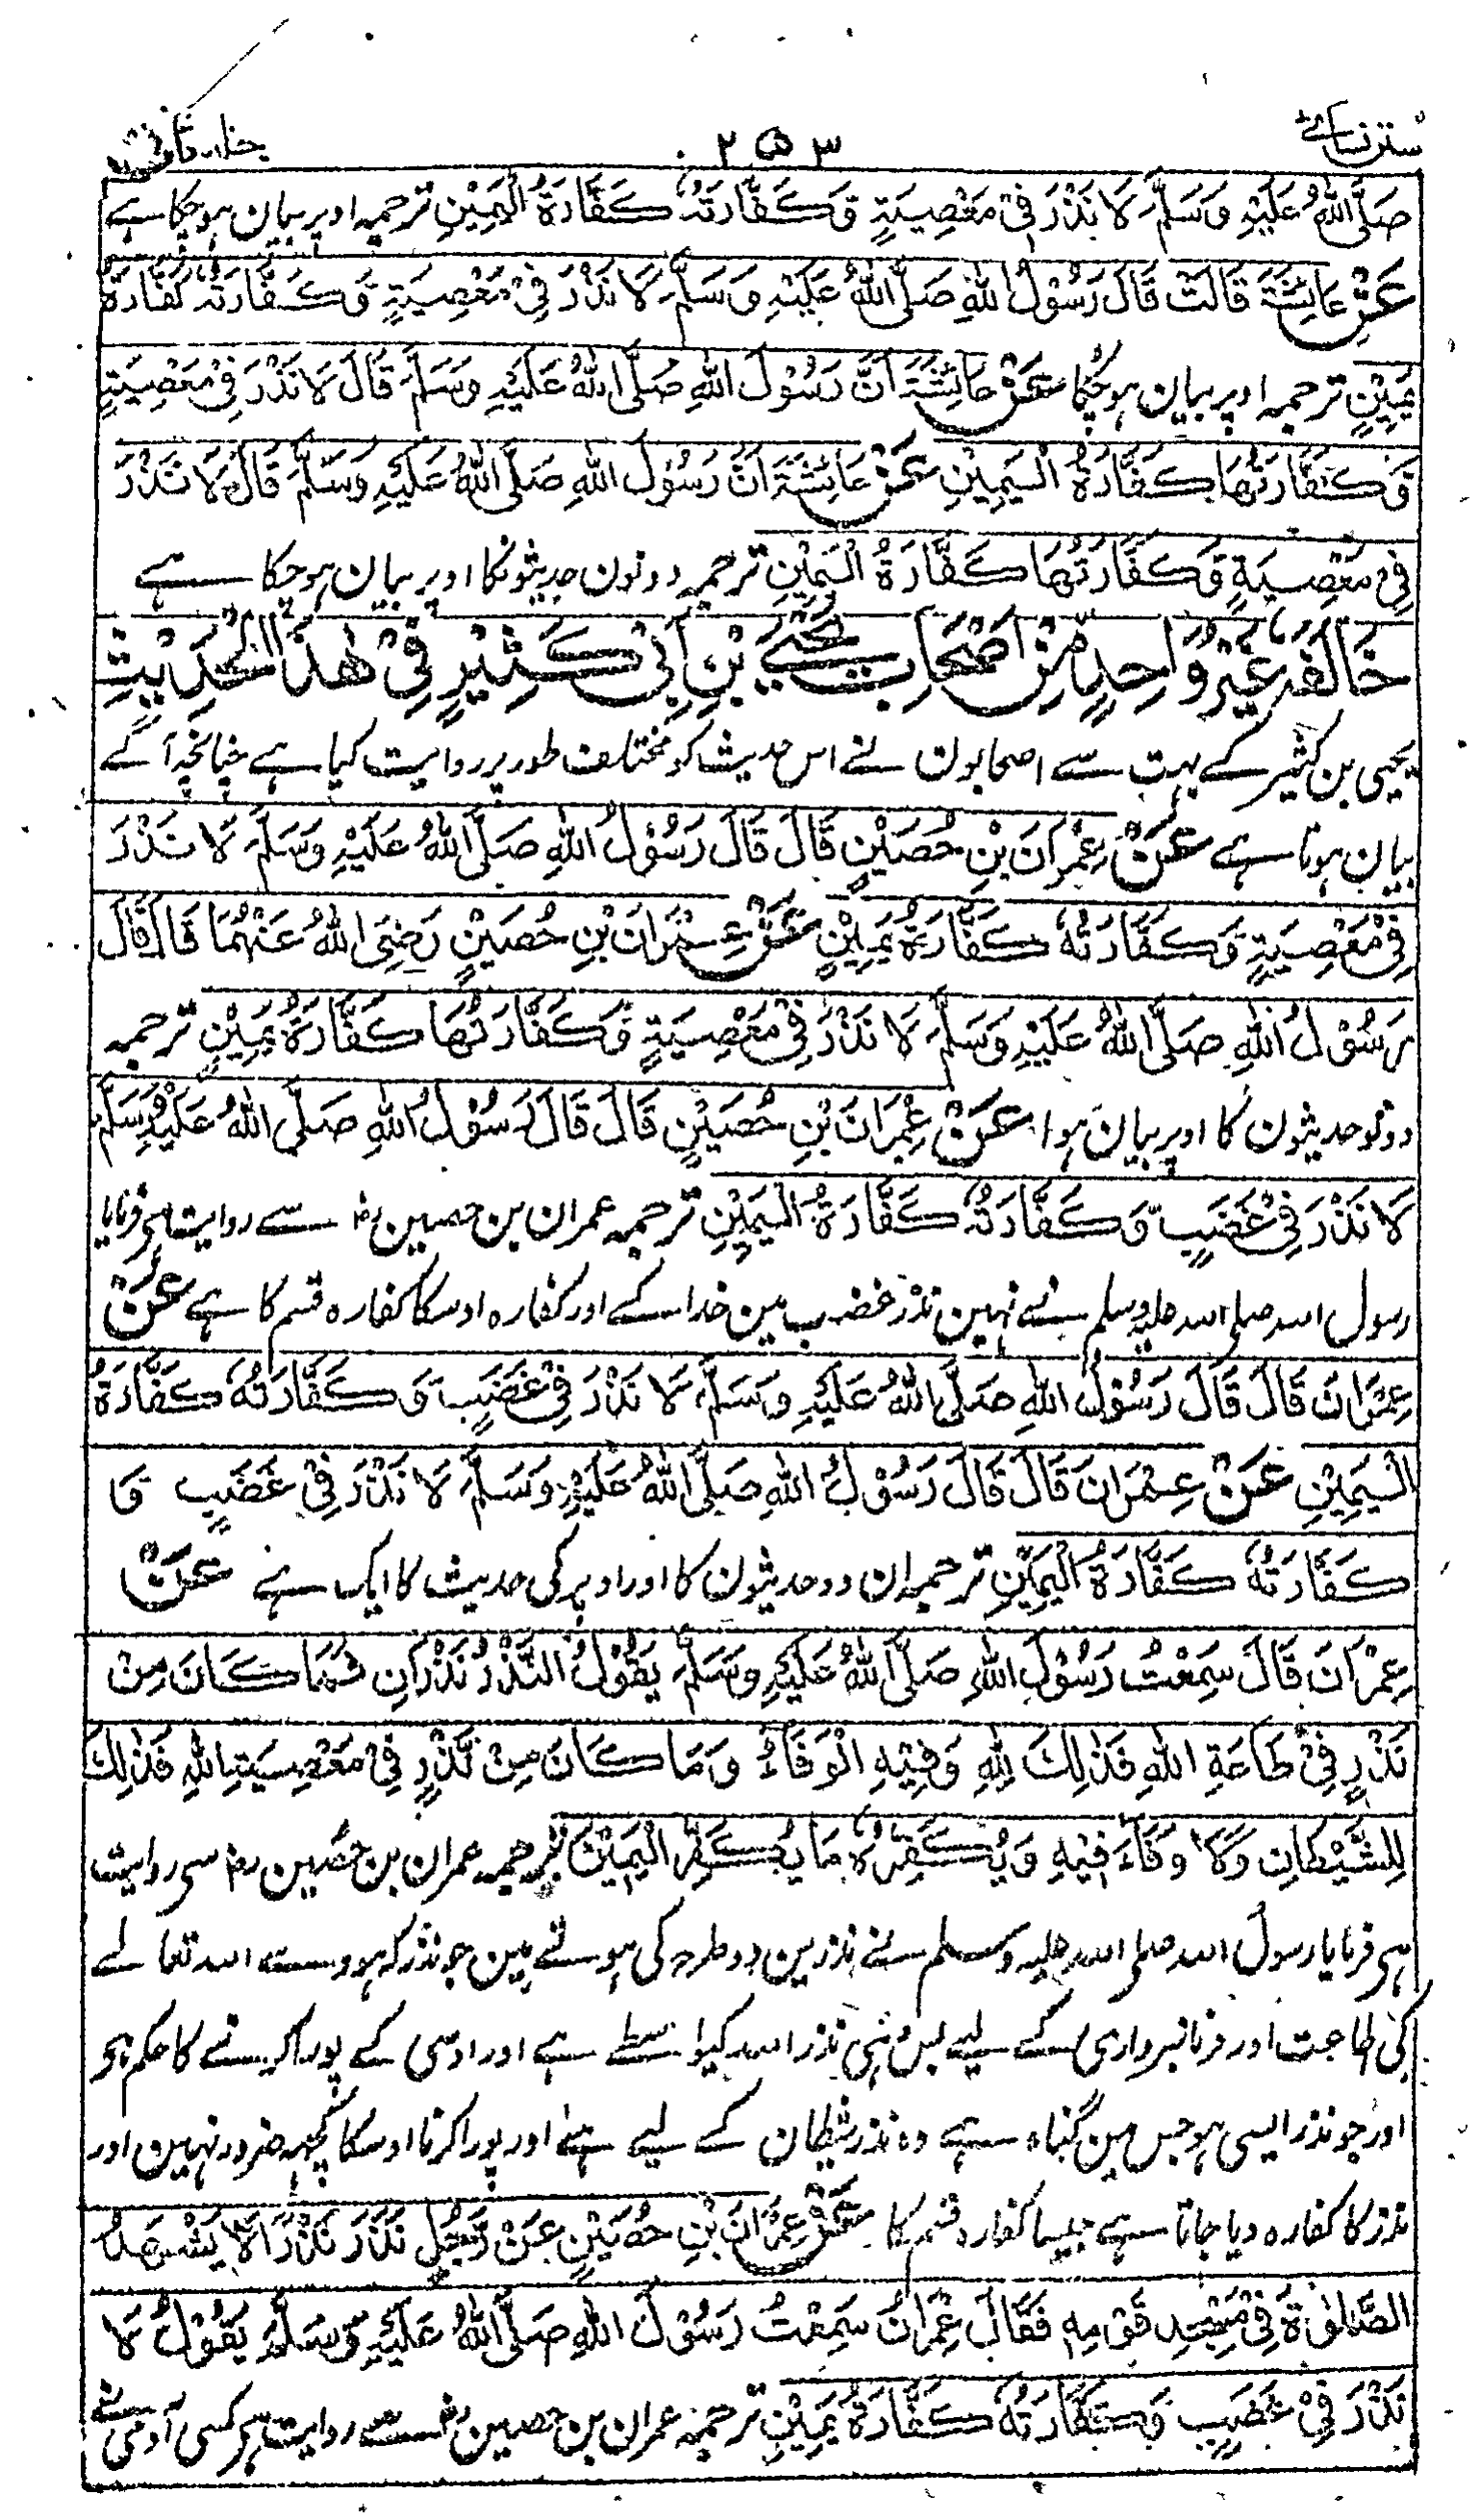 سنن نسائی ۲۵۳ جلد ثانی
صَلَّى اللهُ عَلَيْهِ وَسَلَّمَ لَا نَذْرَ فِيْ مَعْصِيَةٍ وَكَفَّارَتُهٗ كَفَّارَةُ الْيَمِيْنِ ترجمہ اوپر بیان ہوچکا ہے
عَنْ عَائِشَةَ قَالَتْ قَالَ رَسُوْلُ اللهِ صَلَّى اللهُ عَلَيْهِ وَسَلَّمَ لَا نَذْرَ فِيْ مَعْصِيَةٍ وَكَفَّارَتُهٗ كَفَّارَةُ
يَمِيْنٍ ترجمہ اوپر بیان ہوچکا عَنْ عَائِشَةَ اَنَّ رَسُوْلَ اللهِ صَلَّى اللهُ عَلَيْهِ وَسَلَّمَ قَالَ لَا نَذْرَ فِيْ مَعْصِيَةٍ
وَكَفَّارَتُهَا كَفَّارَةُ الْيَمِيْنِ عَنْ عَائِشَةَ اَنَّ رَسُوْلَ اللهِ صَلَّى اللهُ عَلَيْهِ وَسَلَّمَ قَالَ لَا نَذْرَ
فِيْ مَعْصِيَةٍ وَكَفَّارَتُهَا كَفَّارَةُ الْيَمِيْنِ ترجمہ دونون حدیثونکا اوپر بیان ہوچکا ہے
خَالَفَهٗ غَيْرُ وَاحِدٍ مِنْ اَصْحَابِ يَحْيَى بْنِ اَبِيْ كَثِيْرٍ فِيْ هٰذَا الْحَدِيْثِ
یحیی بن کثیر کے بہت سے اصحابون نے اس حدیث کو مختلف طور پر روایت کیا ہے چنانچہ آگے
بیان ہوتا ہے عَنْ عِمْرَانَ بْنِ حُصَيْنٍ قَالَ قَالَ رَسُوْلُ اللهِ صَلَّى اللهُ عَلَيْهِ وَسَلَّمَ لَا نَذْرَ
فِيْ مَعْصِيَةٍ وَكَفَّارَتُهٗ كَفَّارَةُ يَمِيْنٍ عَنْ عِمْرَانَ بْنِ حُصَيْنٍ رَضِيَ اللهُ عَنْهُمَا قَالَ قَالَ
رَسُوْلُ اللهِ صَلَّى اللهُ عَلَيْهِ وَسَلَّمَ لَا نَذْرَ فِيْ مَعْصِيَةٍ وَكَفَّارَتُهَا كَفَّارَةُ يَمِيْنٍ ترجمہ
دونو حدیثون کا اوپر بیان ہوا عَنْ عِمْرَانَ بْنِ حُصَيْنٍ قَالَ قَالَ رَسُوْلُ اللهِ صَلَّى اللهُ عَلَيْهِ وَسَلَّمَ
لَا نَذْرَ فِيْ غَضَبٍ وَكَفَّارَتُهٗ كَفَّارَةُ الْيَمِيْنِ ترجمہ عمران بن حصین رض سے روایت ہی فرمایا
رسول اللہ صلی اللہ علیہ وسلم نے نہین نذر غضب مین خدا کے اور کفارہ اوسکا کفارہ قسم کا ہے عَنْ
عِمْرَانَ قَالَ قَالَ رَسُوْلُ اللهِ صَلَّى اللهُ عَلَيْهِ وَسَلَّمَ لَا نَذْرَ فِيْ غَضَبٍ وَكَفَّارَتُهٗ كَفَّارَةُ
الْيَمِيْنِ عَنْ عِمْرَانَ قَالَ قَالَ رَسُوْلُ اللهِ صَلَّى اللهُ عَلَيْهِ وَسَلَّمَ لَا نَذْرَ فِيْ غَضَبٍ وَ
كَفَّارَتُهٗ كَفَّارَةُ الْيَمِيْنِ ترجمہ ان دو حدیثون کا اور اوپر کی حدیث کا ایک ہے عَنْ
عِمْرَانَ قَالَ سَمِعْتُ رَسُوْلَ اللهِ صَلَّى اللهُ عَلَيْهِ وَسَلَّمَ يَقُوْلُ النَّذْرُ نَذْرَانِ فَمَا كَانَ مِنْ
نَذْرٍ فِيْ طَاعَةِ اللهِ فَذٰلِكَ لِلهِ وَفِيْهِ الْوَفَاءُ وَمَا كَانَ مِنْ نَذْرٍ فِيْ مَعْصِيَةِ اللهِ فَذٰلِكَ
لِلشَّيْطَانِ وَلَا وَفَاءَ فِيْهِ وَيُكَفِّرُهٗ مَا يُكَفِّرُ الْيَمِيْنَ ترجمہ عمران بن حصین رض سی روایت
ہی فرمایا رسول اللہ صلی اللہ علیہ وسلم نے نذرین دو طرح کی ہوتے ہین جو نذر کہ ہووے اللہ تعالے
کی طاعت اور فرمانبرداری کے لیے پس وہی نذر اللہ کیواسطے ہے اور اوسی کے پورا کرنے کا حکم ہی
اور جو نذر ایسی ہو جس مین گناہ ہے وہ نذر شیطان کے لیے ہے اور پورا کرنا اوسکا کچھہ ضرور نہین اور
نذر کا کفارہ دیا جاتا ہے جیسا کفارہ قسم کا عَنْ عِمْرَانَ بْنِ حُصَيْنٍ عَنْ رَجُلٍ نَذَرَ نَذْرًا لَا يَشْهَدُ
الصَّلٰوةَ فِيْ مَسْجِدِ قَوْمِهٖ فَقَالَ عِمْرَانُ سَمِعْتُ رَسُوْلَ اللهِ صَلَّى اللهُ عَلَيْهِ وَسَلَّمَ يَقُوْلُ لَا
نَذْرَ فِيْ غَضَبٍ وَكَفَّارَتُهٗ كَفَّارَةُ يَمِيْنٍ ترجمہ عمران بن حصین رض سے روایت ہی کسی آدمی نے